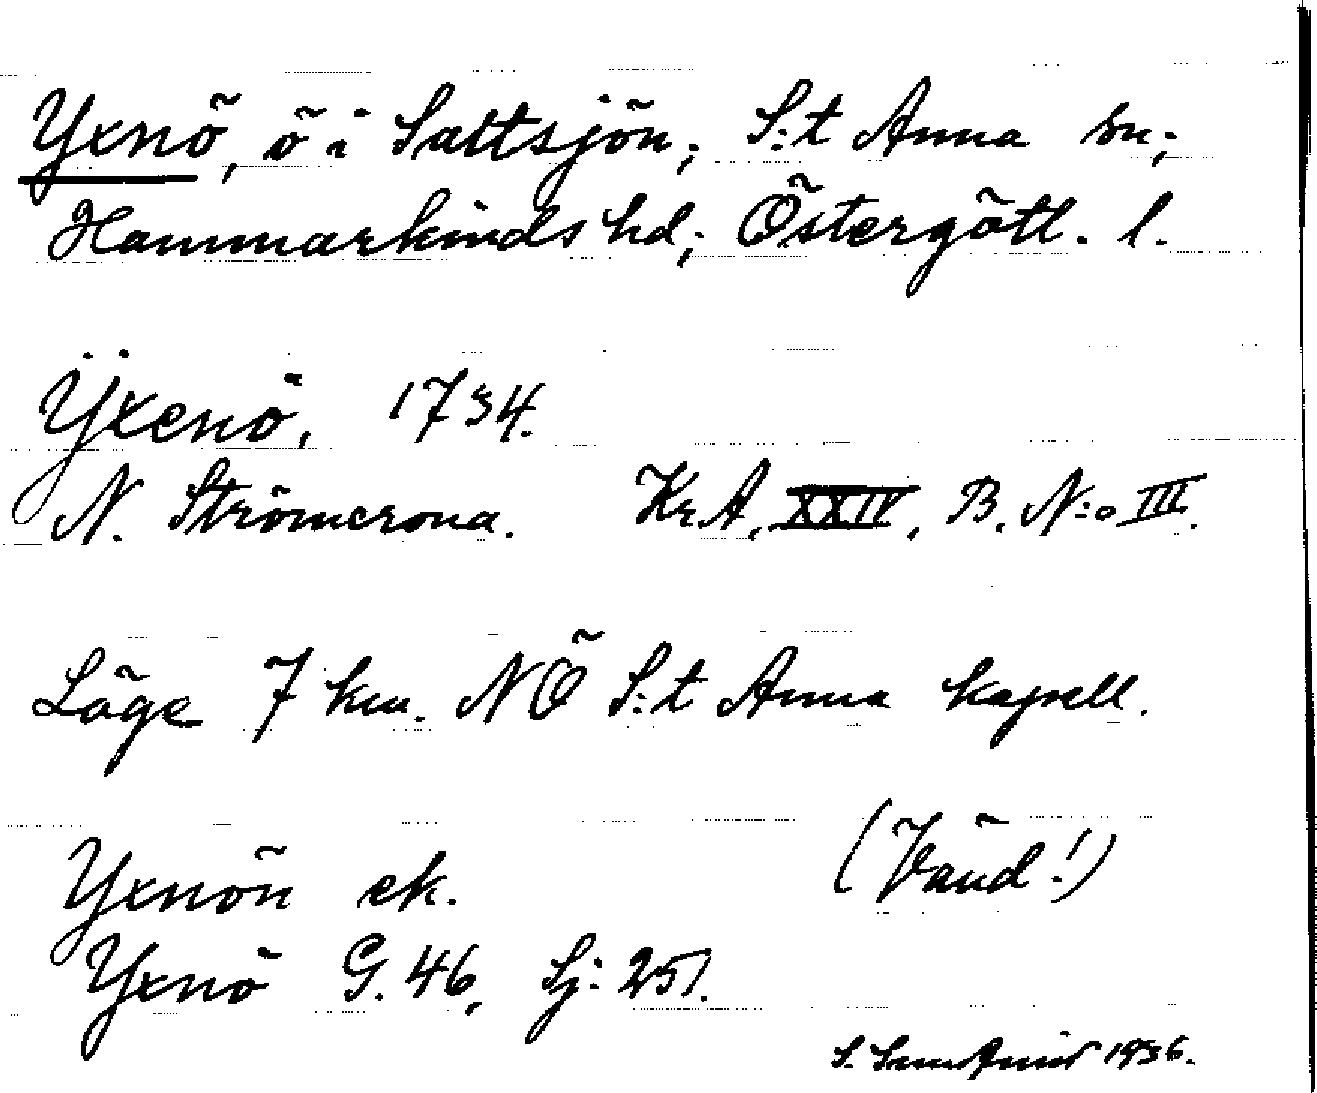 Yxnö, ö i Saltsjön; S:t Anna sn;
Hammarkinds hd; Östergötl. l.
Ÿxenö. 1734.
N. Strömcrona. Kr. A. XXIV, B. N:o III.
Läge 7 km. NÖ S:t Anna kapell.
(Vänd!)
Yxnön ek.
Yxnö G. 46, Sj: 251.
S. 1936.